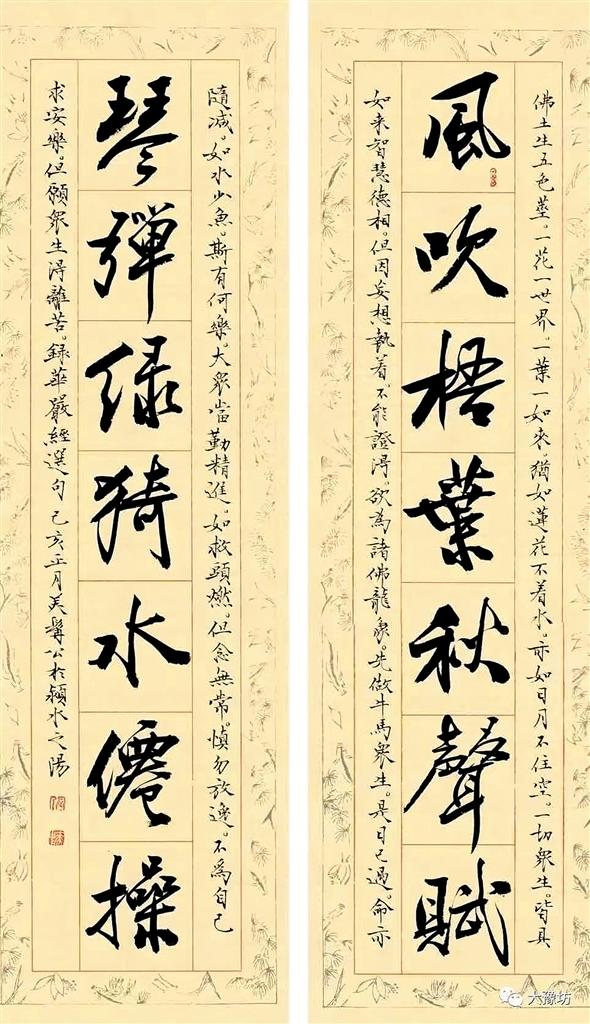 佛土生五色莖。一花一世界。一葉一如來。猶如蓮花不着水。亦如日月不住空。一切衆生。皆具
風吹梧葉秋聲賦
如来智慧德相。但因妄想執着。不能證淂。欲為諸佛龍象。先做牛馬衆生。是日已過。命亦
隨减。如水少魚。斯有何樂。大衆當勤精進。如救頭燃。但念無常。慎勿放逸。不為自己
琴彈绿猗水僊操
求安樂。但願衆生淂離苦。録華嚴經選句 己亥正月美髯公於潁水之陽
大豫坊